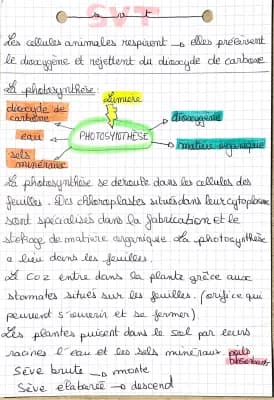 SVT
Les cellules animales respirent → elles prélèvent
le dioxygène et rejettent du dioxyde de carbone
La photosynthèse:
Lumière
dioxyde de
carbone
dioxygène
eau
PHOTOSYNTHÈSE
matière organique
sels
minéraux
La photosynthèse se déroule dans les cellules des
feuilles. Des chloroplastes situés dans leur cytoplasme
sont spécialisés dans la fabrication et le
stockage de matière organique. La photosynthèse
a lieu dans les feuilles.
Le CO2 entre dans la plante grâce aux
stomates situés sur les feuilles. (orifice qui
peuvent s'ouvrir et se fermer).
Les plantes puisent dans le sol par leurs
racines l'eau et les sels minéraux. poils
absorbants
Sève brute → monte
Sève élaborée → descend